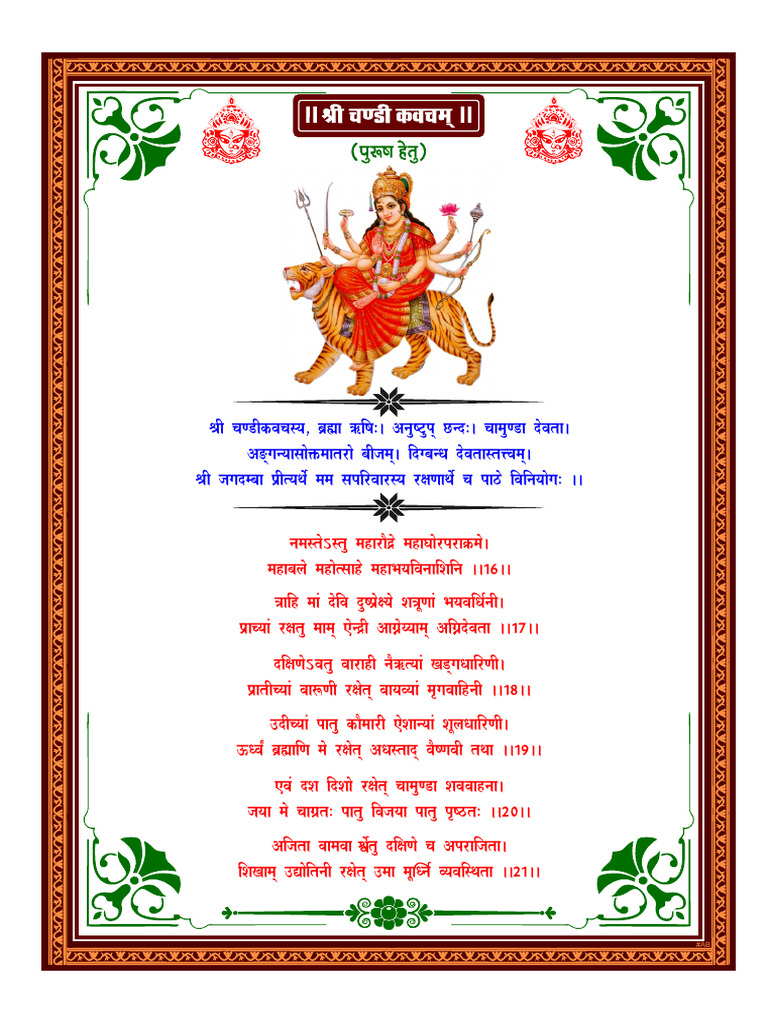 ॥ श्री चण्डी कवचम् ॥
(पुरूष हेतु)
श्री चण्डीकवचस्य, ब्रह्मा ऋषिः। अनुष्टुप् छन्दः। चामुण्डा देवता।
अङ्गन्यासोक्तमातरो बीजम्। दिग्बन्ध देवतास्तत्त्वम्।
श्री जगदम्बा प्रीत्यर्थे मम सपरिवारस्य रक्षणार्थे च पाठे विनियोगः ।।
नमस्तेऽस्तु महारौद्रे महाघोरपराक्रमे।
महाबले महोत्साहे महाभयविनाशिनि ।।16।।
त्राहि मां देवि दुष्प्रेक्ष्ये शत्रूणां भयवर्धिनी।
प्राच्यां रक्षतु माम् ऐन्द्री आग्नेय्याम् अग्निदेवता ।।17।।
दक्षिणेऽवतु वाराही नैऋत्यां खड्गधारिणी।
प्रातीच्यां वारूणी रक्षेत् वायव्यां मृगवाहिनी ।।18।।
उदीच्यां पातु कौमारी ऐशान्यां शूलधारिणी।
ऊर्ध्वं ब्रह्माणि मे रक्षेत् अधस्ताद् वैष्णवी तथा ।।19।।
एवं दश दिशो रक्षेत् चामुण्डा शववाहना।
जया मे चाग्रतः पातु विजया पातु पृष्ठतः ।।20।।
अजिता वामवा र्श्वेतु दक्षिणे च अपराजिता।
शिखाम् उद्योतिनी रक्षेत् उमा मूर्ध्नि व्यवस्थिता ।।21।।
#AB